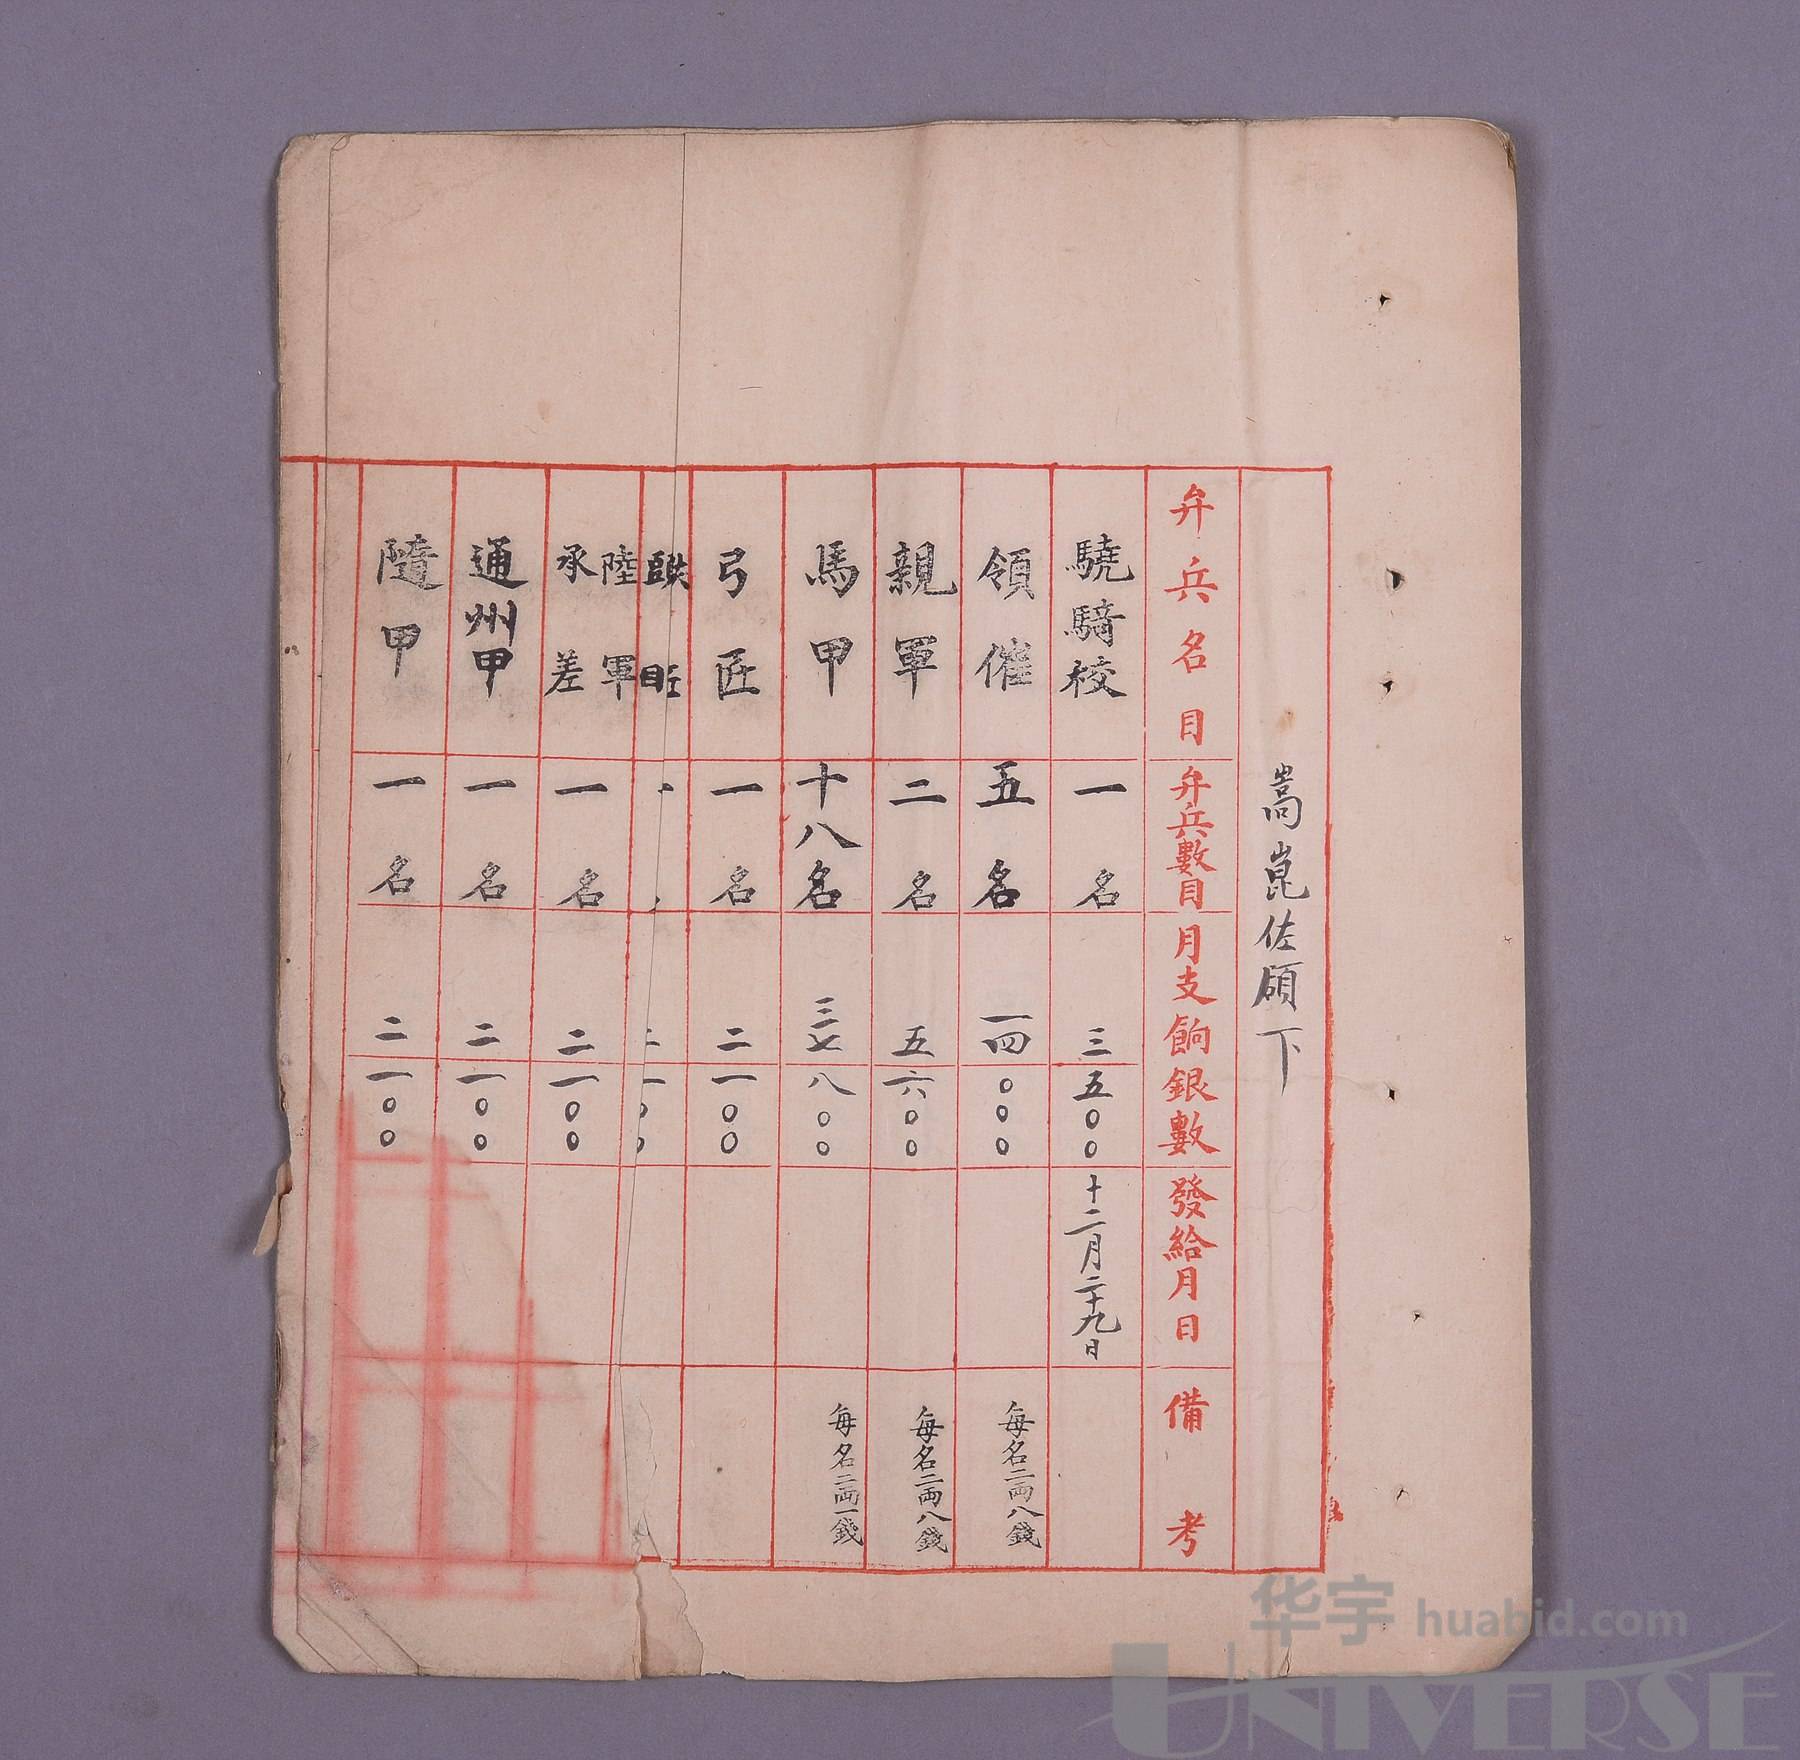 嵩崑佐領下
弁兵名目 弁兵數目 月支餉銀數 發給月日 備考
驍騎校 一名 三五〇〇 十二月二十九日
領催 五名 一四〇〇〇 每名二両八錢
親軍 二名 五六〇〇 每名二両八錢
馬甲 十八名 三七八〇〇 每名二両一錢
弓匠 一名 二一〇〇
陸軍承差 一名 二一〇〇
通州甲 一名 二一〇〇
隨甲 一名 二一〇〇
华宇 huabid.com
UNIVERSE